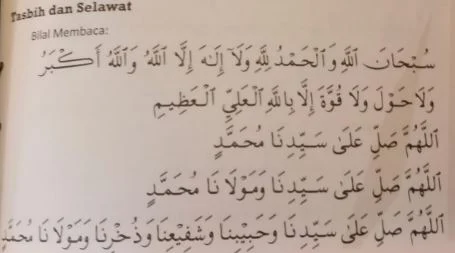 Tasbih dan Selawat
Bilal Membaca:
سُبْحَانَ اللَّهِ وَالْحَمْدُ لِلَّهِ وَلَآ إِلَـٰهَ إِلَّا اللَّهُ وَاللَّهُ أَكْبَرُ
وَلَا حَوْلَ وَلَا قُوَّةَ إِلَّا بِاللَّهِ الْعَلِيِّ الْعَظِيمِ
اللَّهُمَّ صَلِّ عَلَىٰ سَيِّدِنَا مُحَمَّدٍ
اللَّهُمَّ صَلِّ عَلَىٰ سَيِّدِنَا وَمَوْلَانَا مُحَمَّدٍ
اللَّهُمَّ صَلِّ عَلَىٰ سَيِّدِنَا وَحَبِيْبِنَا وَشَفِيْعِنَا وَذُخْرِنَا وَمَوْلَانَا مُحَمَّدٍ